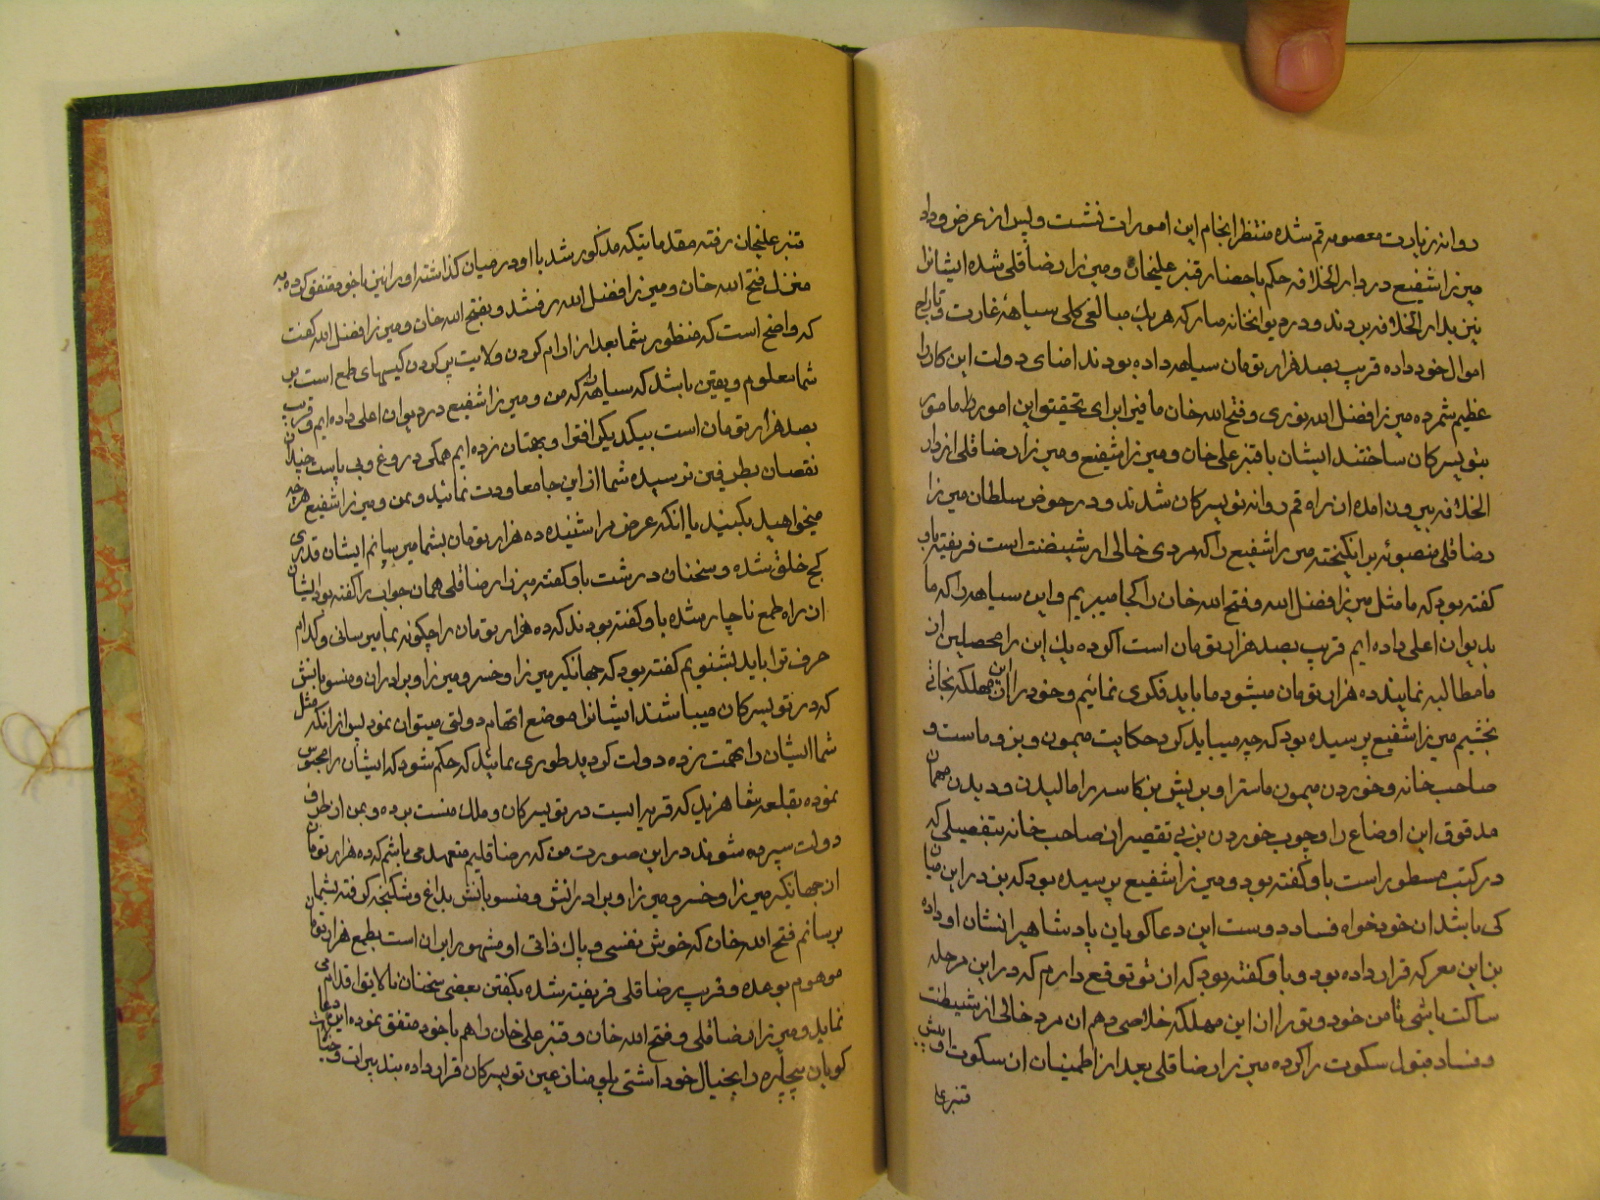 روانه زیارت معصومه قم شده منتظر انجام این امورات نشست و پس از عرض و داد
میرزا شفیع در دار الخلافه حکم باحضار قنبر علیخان و میرزا رضا قلی شده ایشانرا
نیز بدار الخلافه بردند و در دیوانخانه مبارکه هر یک مبالغی کلی سیاهۀ غارت و تاراج
اموال خود داده قریب بصد هزار تومان سیاهه داده بودند امنای دولت این کار را
عظیم شمرده میرزا فضل الله نوری و فتح الله خان مافی را برای تحقیق این امور مامور
بتویسرکان ساختند ایشان با قنبر علی خان و میرزا شفیع و میرزا رضا قلی از دار
الخلافه بیرون امده از راه قم روانه تویسرکان شدند و در حوض سلطان میرزا
رضا قلی منصوبۀ برانگیخته میرزا شفیع را که مردی خالی از شیطنت است فریفته باو
گفته بود که ما مثل میرزا فضل الله و فتح الله خان را کجا میبریم و این سیاهه را که ما
بدیوان اعلی داده ایم قریب بصد هزار تومان است اگر ده یک این را محصلین از
ما مطالبه نمایند ده هزار تومان میشود ما باید فکری نمائیم و خود را از این مهلکه نجاتی
بخشیم میرزا شفیع پرسیده بود که چه میباید کرد حکایت میمون و بز و ماست و
صاحب خانه و خوردن میمون ماست را و بریش بز کاسه را مالیدن و دیدن مهمان
مدقوق این اوضاع را و چوب خوردن بز بی تقصیر از صاحب خانه بتفصیلی که
در کتب مسطور است باو گفته بود و میرزا شفیع پرسیده بود که بز در این میان
کی باشد ان خود خواه فساد دوست این دعا گویان پادشاه را نشان او داده
بز این معرکه قرار داده بود و باو گفته بود که از تو توقع دارم که در این مرحله
ساکت باشی تا من خود و تو را از این مهلکه خلاصی دهم ان مرد خالی از شیطنت
و فساد قبول سکوت را کرده میرزا رضا قلی بعد از اطمینان از سکوت او پیش
قنبر علی
قنبر علیخان رفته مقدماتیکه مذکور شد با او در میان گذاشته او را نیز با خود متفق کرده به
منزل فتح الله خان و میرزا فضل الله رفتند و بفتح الله خان و میرزا فضل الله گفت
که واضح است که منظور شما بعد از ارام کردن ولایت پر کردن کیسهای طمع است بر
شما معلوم و یقین باشد که سیاهه را که من و میرزا شفیع در دیوان اعلی داده ایم و قریب
بصد هزار تومان است بیکدیگر افترا و بهتان زده ایم همکی دروغ و بی پاست چندان
نقصان بطرفین نرسیده شما از این جا معاودت نمائید و بمن و میرزا شفیع هر چه
میخواهید بکنید یا انکه عرض مرا شنیده ده هزار تومان بشما میرسانم ایشان قدری
کج خلق شده و سخنان درشت باو گفته میرزا رضا قلی همان جواب را گفته بود ایشان
از راه طمع ناچار شده باو گفته بودند که ده هزار تومان را چگونه بما میرسانی و کدام
حرف ترا باید بشنویم گفته بود که جهانگیر میرزا و خسرو میرزا و برادران و منسوبانش
که در تویسرکان میباشند ایشانرا موضع اتهام دولتی میتوان نمود پس از انکه مثل
شما ایشان را تهمت زده دولت کردید طوری نمائید که حکم شود که ایشان را محبوس
نموده بقلعه شاهزید که قریه ایست در تویسرکان و ملک منست برده و بمن از طرف
دولت سپرده شوند در این صورت من که رضا قلیم متعهد می باشم که ده هزار تومان
از جهانگیر میرزا و خسرو میرزا و برادرانش و منسوبانش بداغ و شکنجه گرفته بشما
برسانم فتح الله خان که خوش نفسی و پاک ذاتی او مشهور ایران است بطمع هزار تومان
موهوم بوعده و فریب رضا قلی فریفته شده بگفتن بعضی سخنان مالایق اقدام می
نماید و میرزا رضا قلی و فتح الله خان و قنبر علی خان را هم با خود متفق نموده این دعا
گویان بیچاره را بخیال خود اشتی پلو عین تویسرکان قرار داده بتدبیرات و